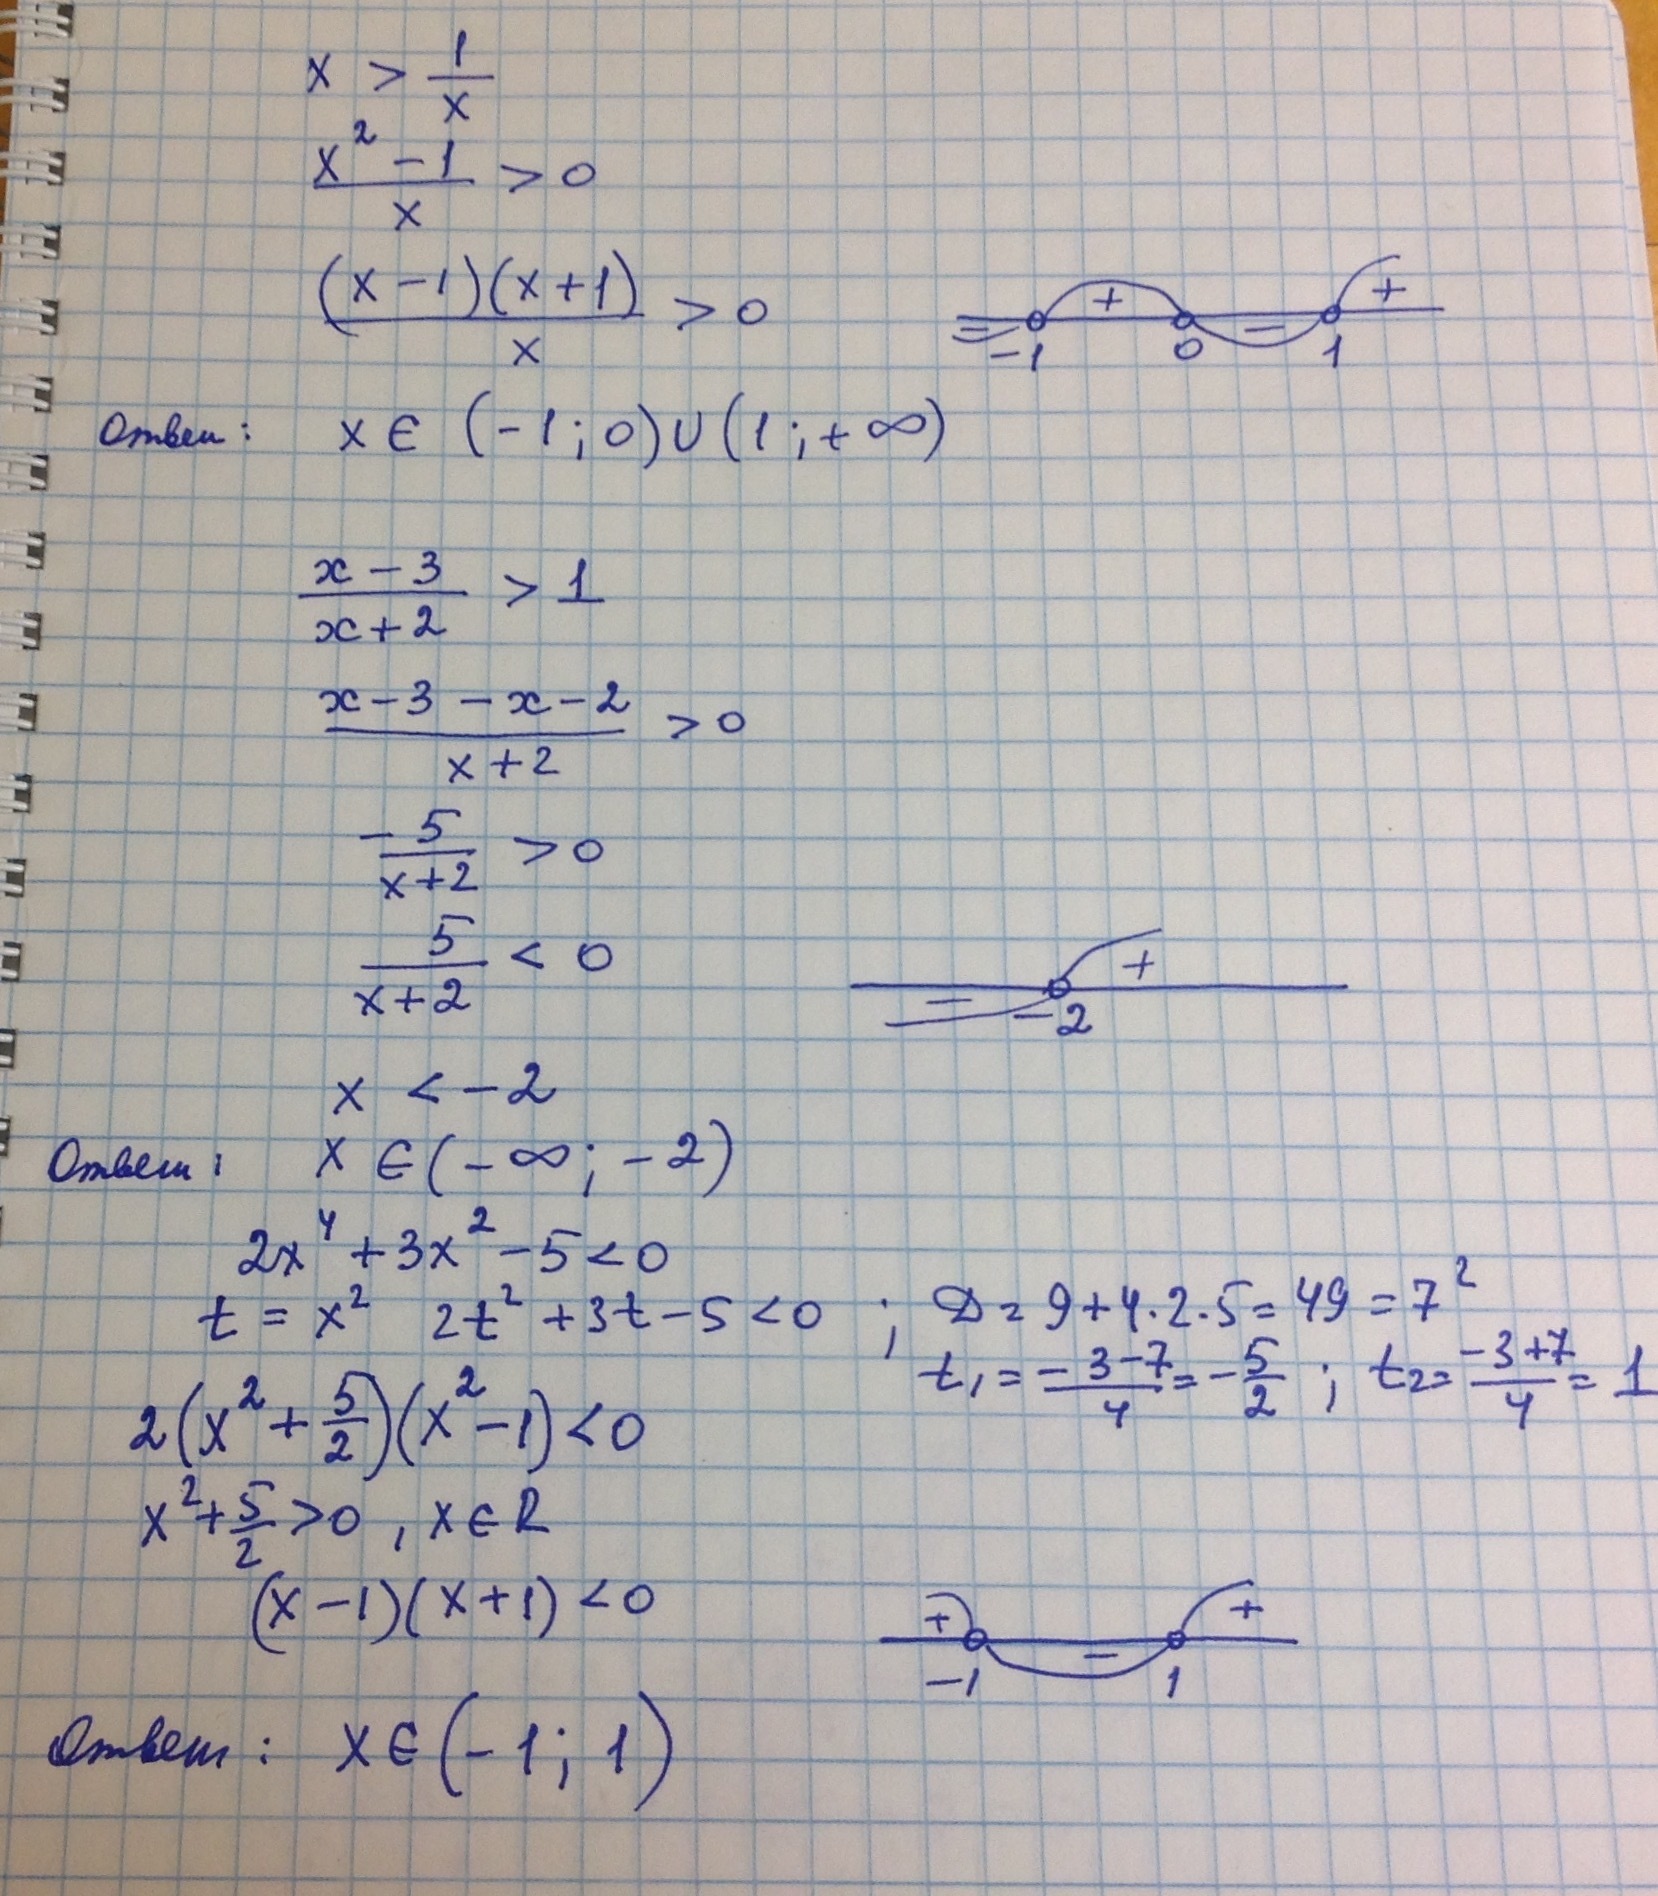 x > 1/x
(x² - 1)/x > 0
((x - 1)(x + 1))/x > 0
= -1 + 0 - 1 +
Ответ: x ∈ (-1; 0) ∪ (1; +∞)
(x - 3)/(x + 2) > 1
(x - 3 - x - 2)/(x + 2) > 0
-5/(x + 2) > 0
5/(x + 2) < 0
- -2 +
x < -2
Ответ: x ∈ (-∞; -2)
2x⁴ + 3x² - 5 < 0
t = x² 2t² + 3t - 5 < 0 ; D = 9 + 4·2·5 = 49 = 7²
t₁ = (-3-7)/4 = -5/2 ; t₂ = (-3+7)/4 = 1
2(x² + 5/2)(x² - 1) < 0
x² + 5/2 > 0, x ∈ R
(x - 1)(x + 1) < 0
+ -1 - 1 +
Ответ: x ∈ (-1; 1)